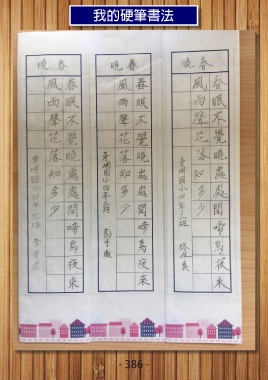 我的硬筆書法
春曉
春眠不覺曉處處聞啼鳥夜來
風雨聲花落知多少
春曉
春眠不覺曉處處聞啼鳥夜來
風雨聲花落知多少
春曉
春眠不覺曉處處聞啼鳥夜來
風雨聲花落知多少
- 386 -